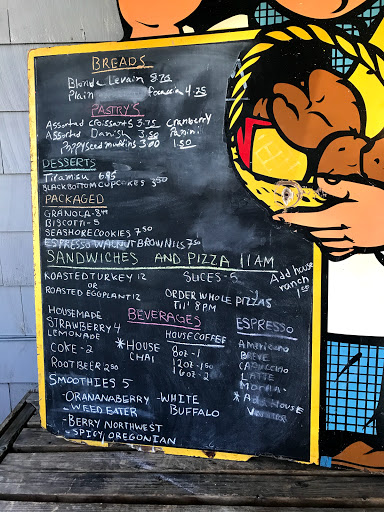 BREADS
Blonde Levain 8.75
Plain focaccia 4.75
PASTRY'S
Assorted croissants 3.75 Cranberry
Assorted Danish 3.50 Panini
Poppyseed muffins 3.00 1.50
DESSERTS
Tiramisu 6.95
BLACK BOTTOM CUPCAKES 3.50
PACKAGED
GRANOLA-8
BISCOTTI-5
SEASHORE COOKIES 7.50
ESPRESSO WALNUT BROWNIES 7.50
SANDWICHES AND PIZZA 11AM
ROASTED TURKEY 12 SLICES-5 Add house
OR ranch
ROASTED EGGPLANT 12 ORDER WHOLE PIZZAS 1.50
Til' 8PM
HOUSEMADE BEVERAGES
STRAWBERRY 4 ESPRESSO
LEMONADE HOUSE COFFEE
*HOUSE 8oz-1 Americano
COKE-2 CHAI 12oz-1.50 BREVE
ROOT BEER 2.50 16oz-2 CAPPUCCINO
LATTE
SMOOTHIES 5 Mocha-
-ORANANABERRY -WHITE * Add House
-WEED EATER BUFFALO Vanilla
-BERRY NORTHWEST
-SPICY OREGONIAN